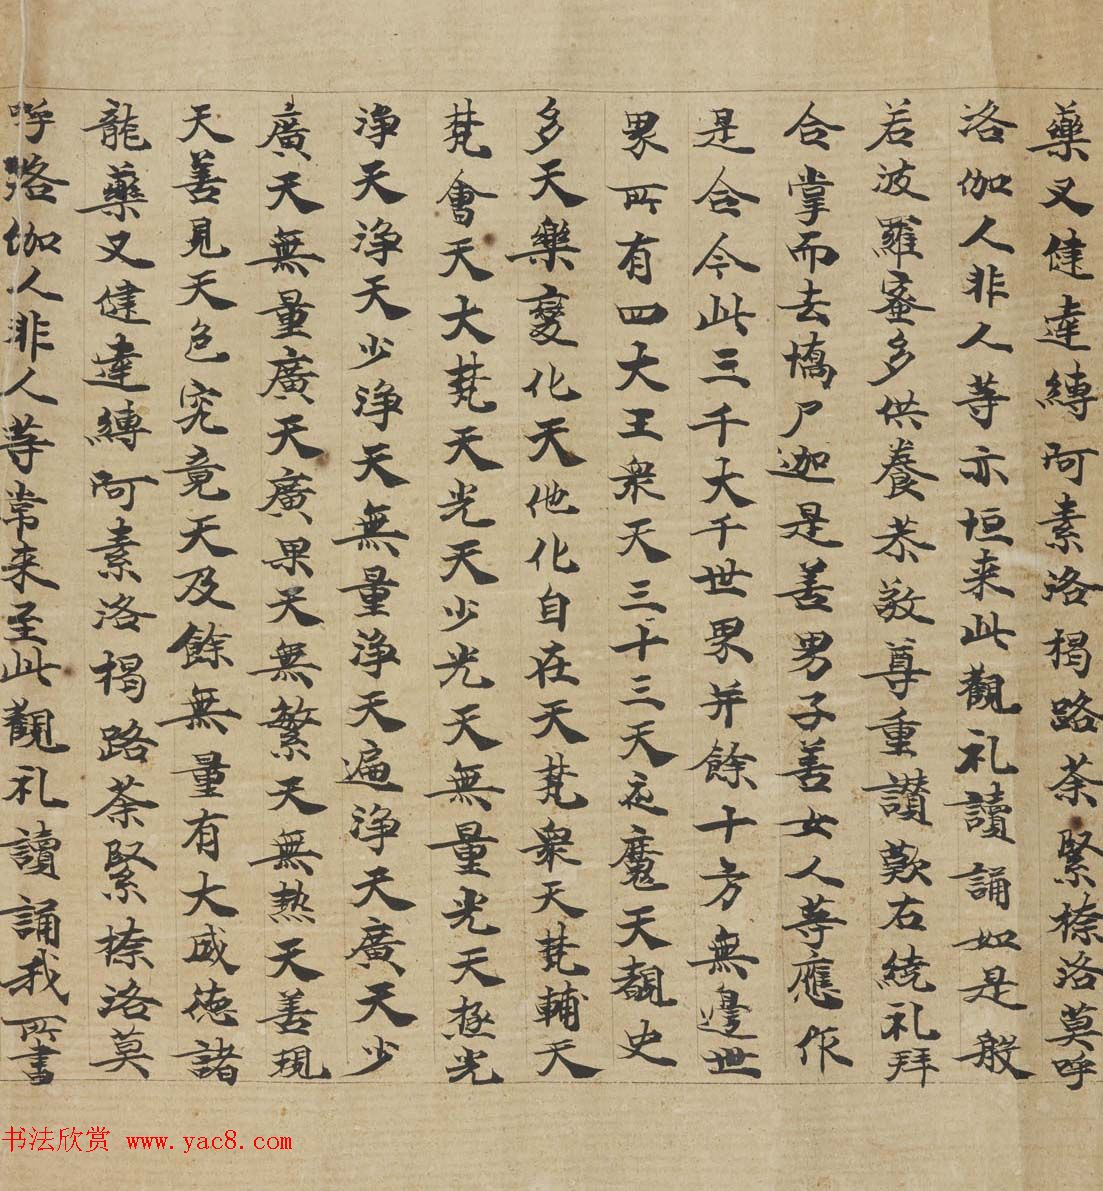 藥叉健達縛阿素洛揭路荼緊捺洛莫呼
洛伽人非人等亦恒来此觀礼讀誦如是般
若波羅蜜多供養恭敬尊重讃歎右繞礼拜
合掌而去憍尸迦是善男子善女人等應作
是念今此三千大千世界并餘十方無邊世
界所有四大王衆天三十三天夜魔天覩史
多天樂變化天他化自在天梵衆天梵輔天
梵會天大梵天光天少光天無量光天極光
淨天淨天少淨天無量淨天遍淨天廣天少
廣天無量廣天廣果天無繁天無熱天善現
天善見天色究竟天及餘無量有大威德諸
龍藥叉健達縛阿素洛揭路荼緊捺洛莫
呼洛伽人非人等常来至此觀礼讀誦我所書
书法欣赏 www.yac8.com